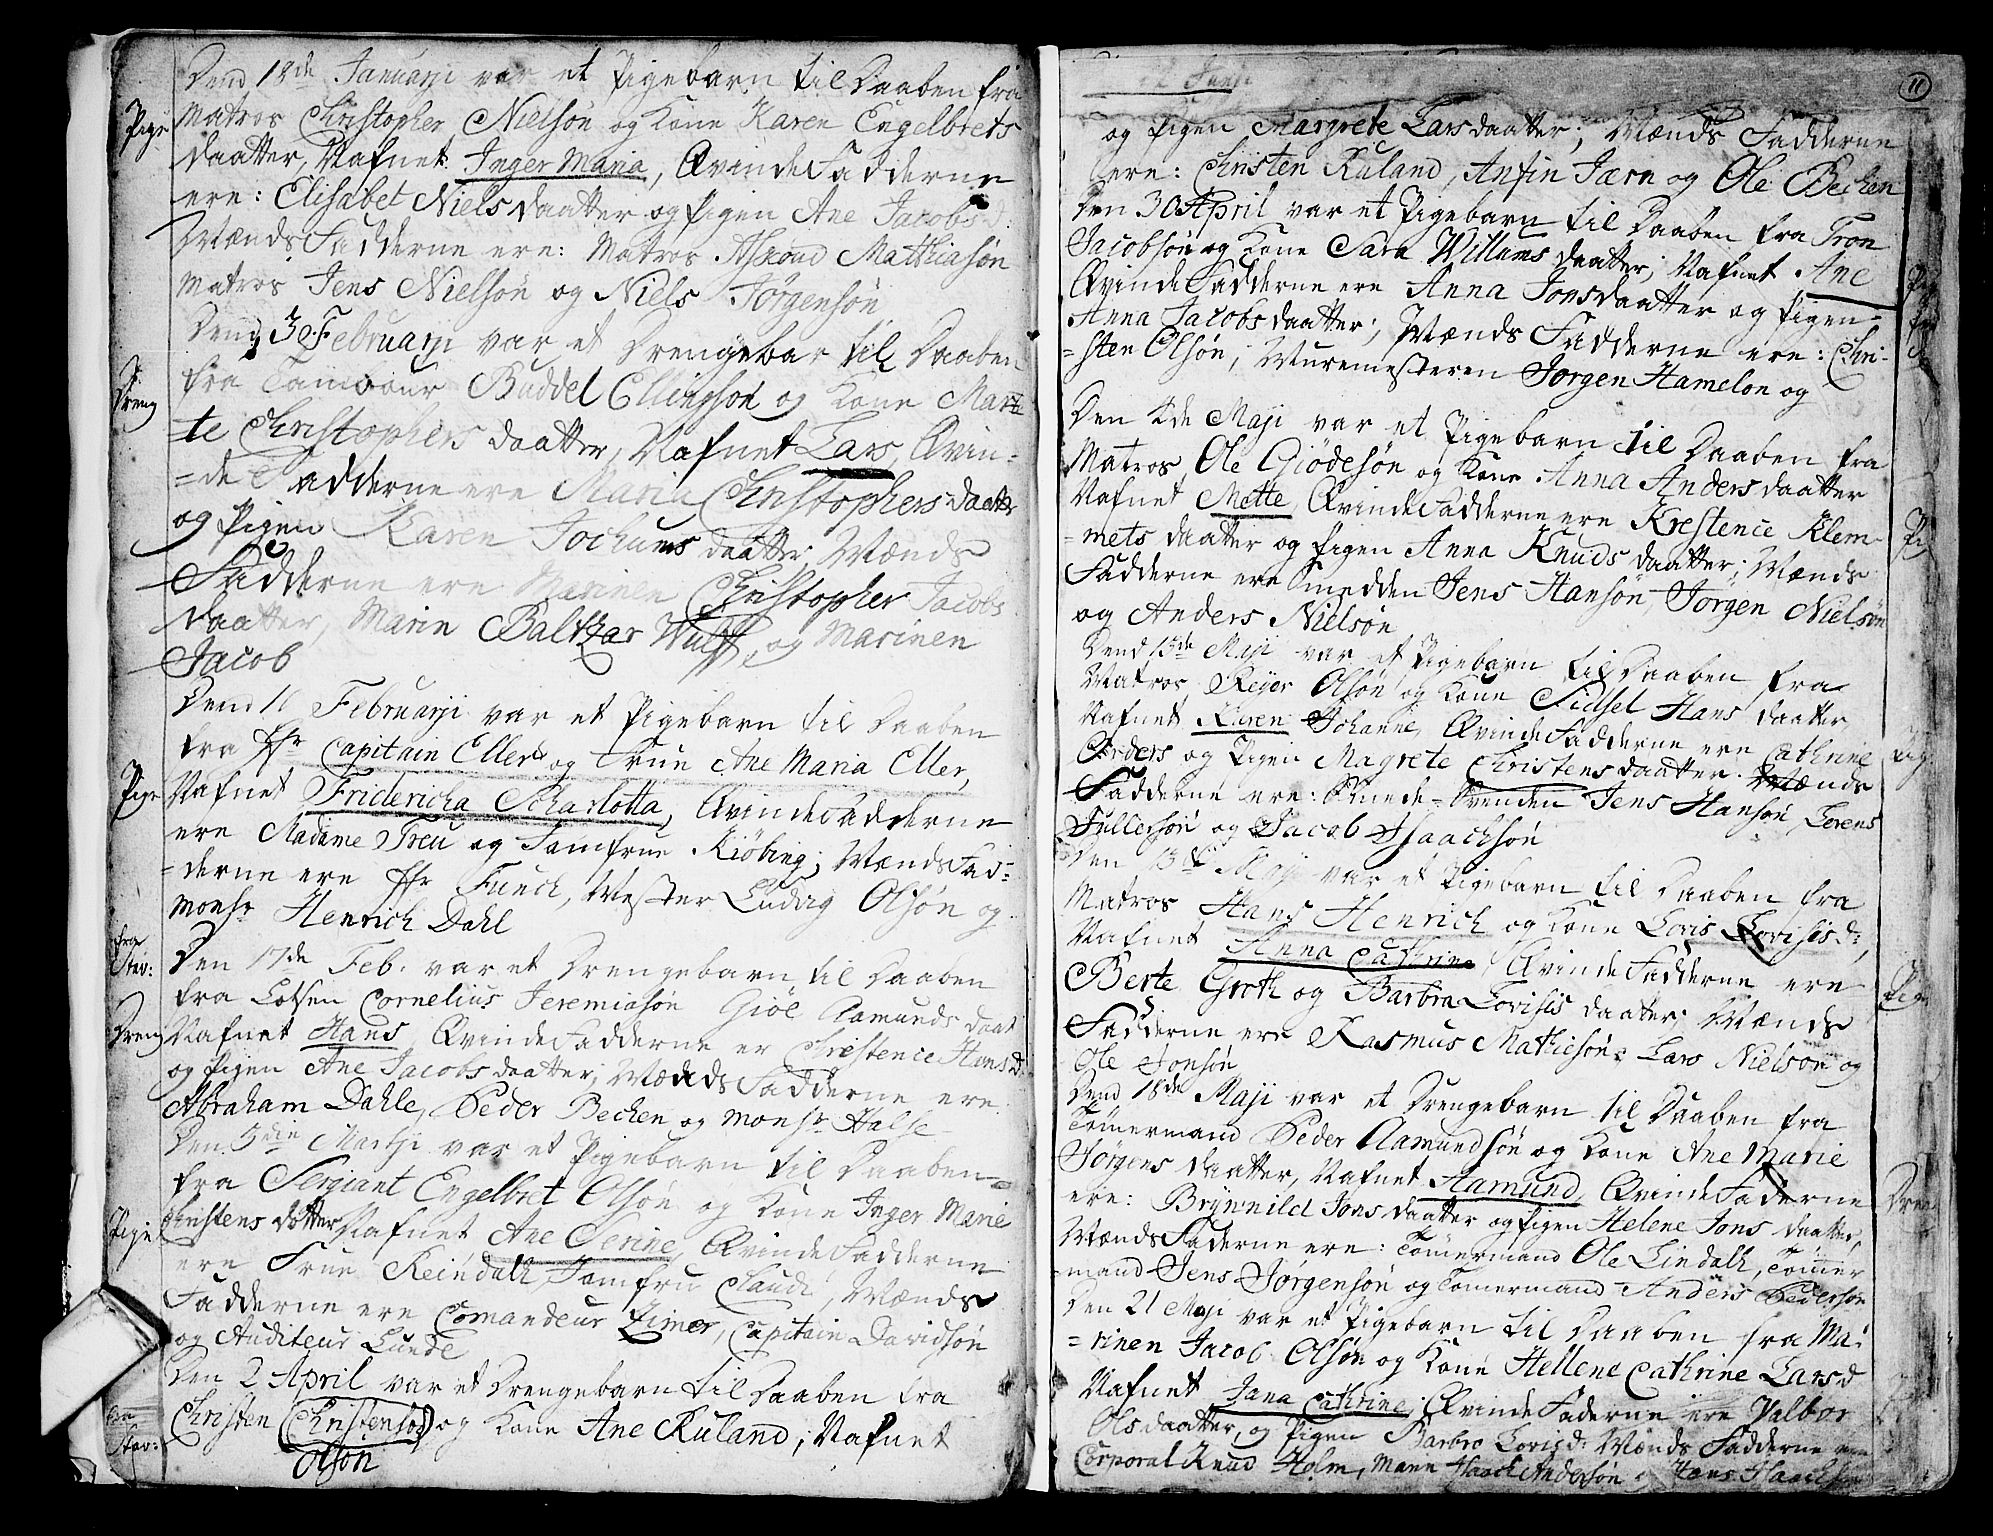 Dend 18de Januarji var et Pigebarn til Daaben fra
Pige
Matros Christopher Nielsøn og Kone Karen Engelbrets
daatter, Nafnet Inger Maria, QvindeFadderne
ere: Elisabet Nielsdaatter og Pigen Ane Jacobsd:
MændsFadderne ere: Matros Askoud Mathiasøn
Matros Jens Nielsøn og Niels Jørgensøn
Dend 30 Februarji var et Drengebar til Daaben
Dreng
fra Tambour Buddel Ellingsøn og Kone Mar=
=te Christophers daatter, Nafnet Lars, Qvin=
=de Fadderne ere Maria Christophers daatter
og Pigen Karen Jochums daatter; Mænds
Fadderne ere Marinen Christopher Jacobs
daatter, Marin Baltzar Wulff, og Marinen
Jacob
Dend 11 Februarji var et Pigebarn til Daaben
fra Hr Capitain Eller og Frue Ane Maria Eller,
Pige
Nafnet Fridericha Scharlotta, QvindeFadderne
ere Madame Treu og Jomfrue Kiöbing; MændsFad=
=derne ere Hr Funch, Mester Ludvig Olsøn og
Monsr Henrich Dahl
fra
Stav:
Den 17de Feb. var et Drengebarn til Daaben
fra Lotsen Cornelius Jeremiasøn Gioe Aamunds daat
Dreng
Nafnet Hans, QvindeFadderne er Christence Hansd:
og Pigen Ane Jacobsdaatter; MændsFadderne ere
Abraham Dahle, Peder Bechen og Monsr Halse
Den 5din Martji var et Pigebarn til Daaben
fra Sergiant Engelbret Olsøn og Kone Inger Marie
Pige
Christens dotter Nafnet Ane Serine, QvindeFadderne
ere Frue Reindalh, Jomfru Claudi, Mænds
Fadderne ere Comandeur Zimer, Capitain Davidsøn
og Auditeur Lunde
Den 2 April var et Drengebarn til Daaben fra
Stav:
Christen Christensøn og Kone Ane Ruland; Nafnet
Olsøn
11
og Pigen Margrete Larsdaatter; Mænds Fadderne
ere: Christen Ruland, Anfin Jærn og Ole Bechen
Den 30 April var et Pigebarn til Daaben fra Tron
Jacobsøn og Kone Sara Willums daatter; Nafnet Ane
QvindeFadderne ere Anna Jonsdaatter og Pigen
Anna Jacobsdaatter; Mænds Fadderne ere: Chri=
=sten Olsøn; Muremesteren Jørgen Hamelon og
Den 4de Maji var et Pigebarn til Daaben fra
Matros Ole Giödesøn og Kone Anna Andersdaatter
Nafnet Mette, QvindeFadderne ere Krestence Klem=
=mets daatter og Pigen Anna Knudsdaatter; Mænds
Fadderne ere Smedden Jens Hansøn, Jørgen Nielsøn
og Anders Nielsøn
Dend 15de Maji var et Pigebarn til Daaben fra
Matros Reyer Olsøn og Kone Sidsel Hans daatter
Nafnet Karen Johanne, QvindeFadderne ere Cathrine
Corders og Pigen Magrete Christensdaatter. Mænds
Fadderne ere: Smede=Svenden Jens Hansøn, Lorens
Tullersøn og Jacob Isaachsøn
Den 13de Maji var et Pigebarn til Daaben fra
Matros Hans Henrich og Kone Lovis Lovisisd:,
Nafnet Anna Cathrine, QvindeFadderne ere
Pige
Berte Groth og Barbra Lovisis daater; Mænds
Fadderne ere Rasmus Mathiesøn, Lars Nielson og
Ole Jonsøn
Dend 18de Maji var et Drengebarn til Daaben fra
Tömermand Peder Aamundsøn og Kone Ane Marie
Jørgens daatter, Nafnet Aamund, QvindeFaderne
ere: Brynnild Jonsdaatter og Pigen Helene Jons daatter,
MændsFaderne ere: Tömermand Ole Lindalh, Tömer
mand Jens Jørgensøn og Tömermand Anders Pedersøn
Den 21 Maji var et Pigebarn til Daaben fra Ma=
=rinen Jacob Olsøn og Kone Hellene Cathrine Larsd
Nafnet Jana Cathrine; QvindeFaderne ere Valbor
Olsdaatter, og Pigen Barbro Lovisd: Mænds Fadderne ere
Corporal Knud Holm, Mann Isaach Andersøn, Hans Isaachsøn